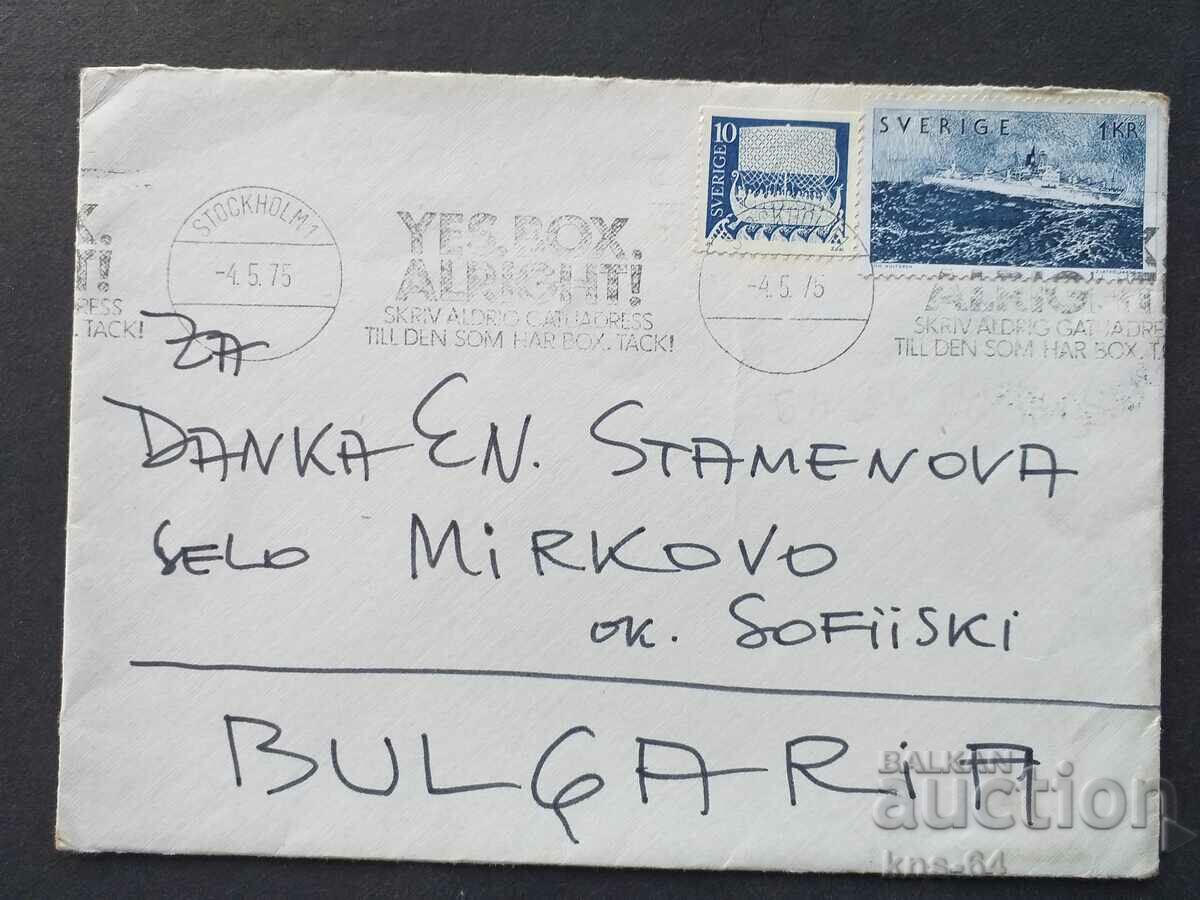 SVERIGE 10
SVERIGE 1 KR
X.
T!
RESS
TACK!
STOCKHOLM 1
-4.5.75
YES, BOX,
ALRIGHT!
SKRIV ALDRIG GATUADRESS
TILL DEN SOM HAR BOX. TACK!
-4.5.75
ALRIGHT!
SKRIV ALDRIG GATUADRE
TILL DEN SOM HAR BOX. TA
ZA
DANKA EN. STAMENOVA
SELO MIRKOVO
OK. SOFIISKI
BULGARIA
BALKAN
auction
kns-64